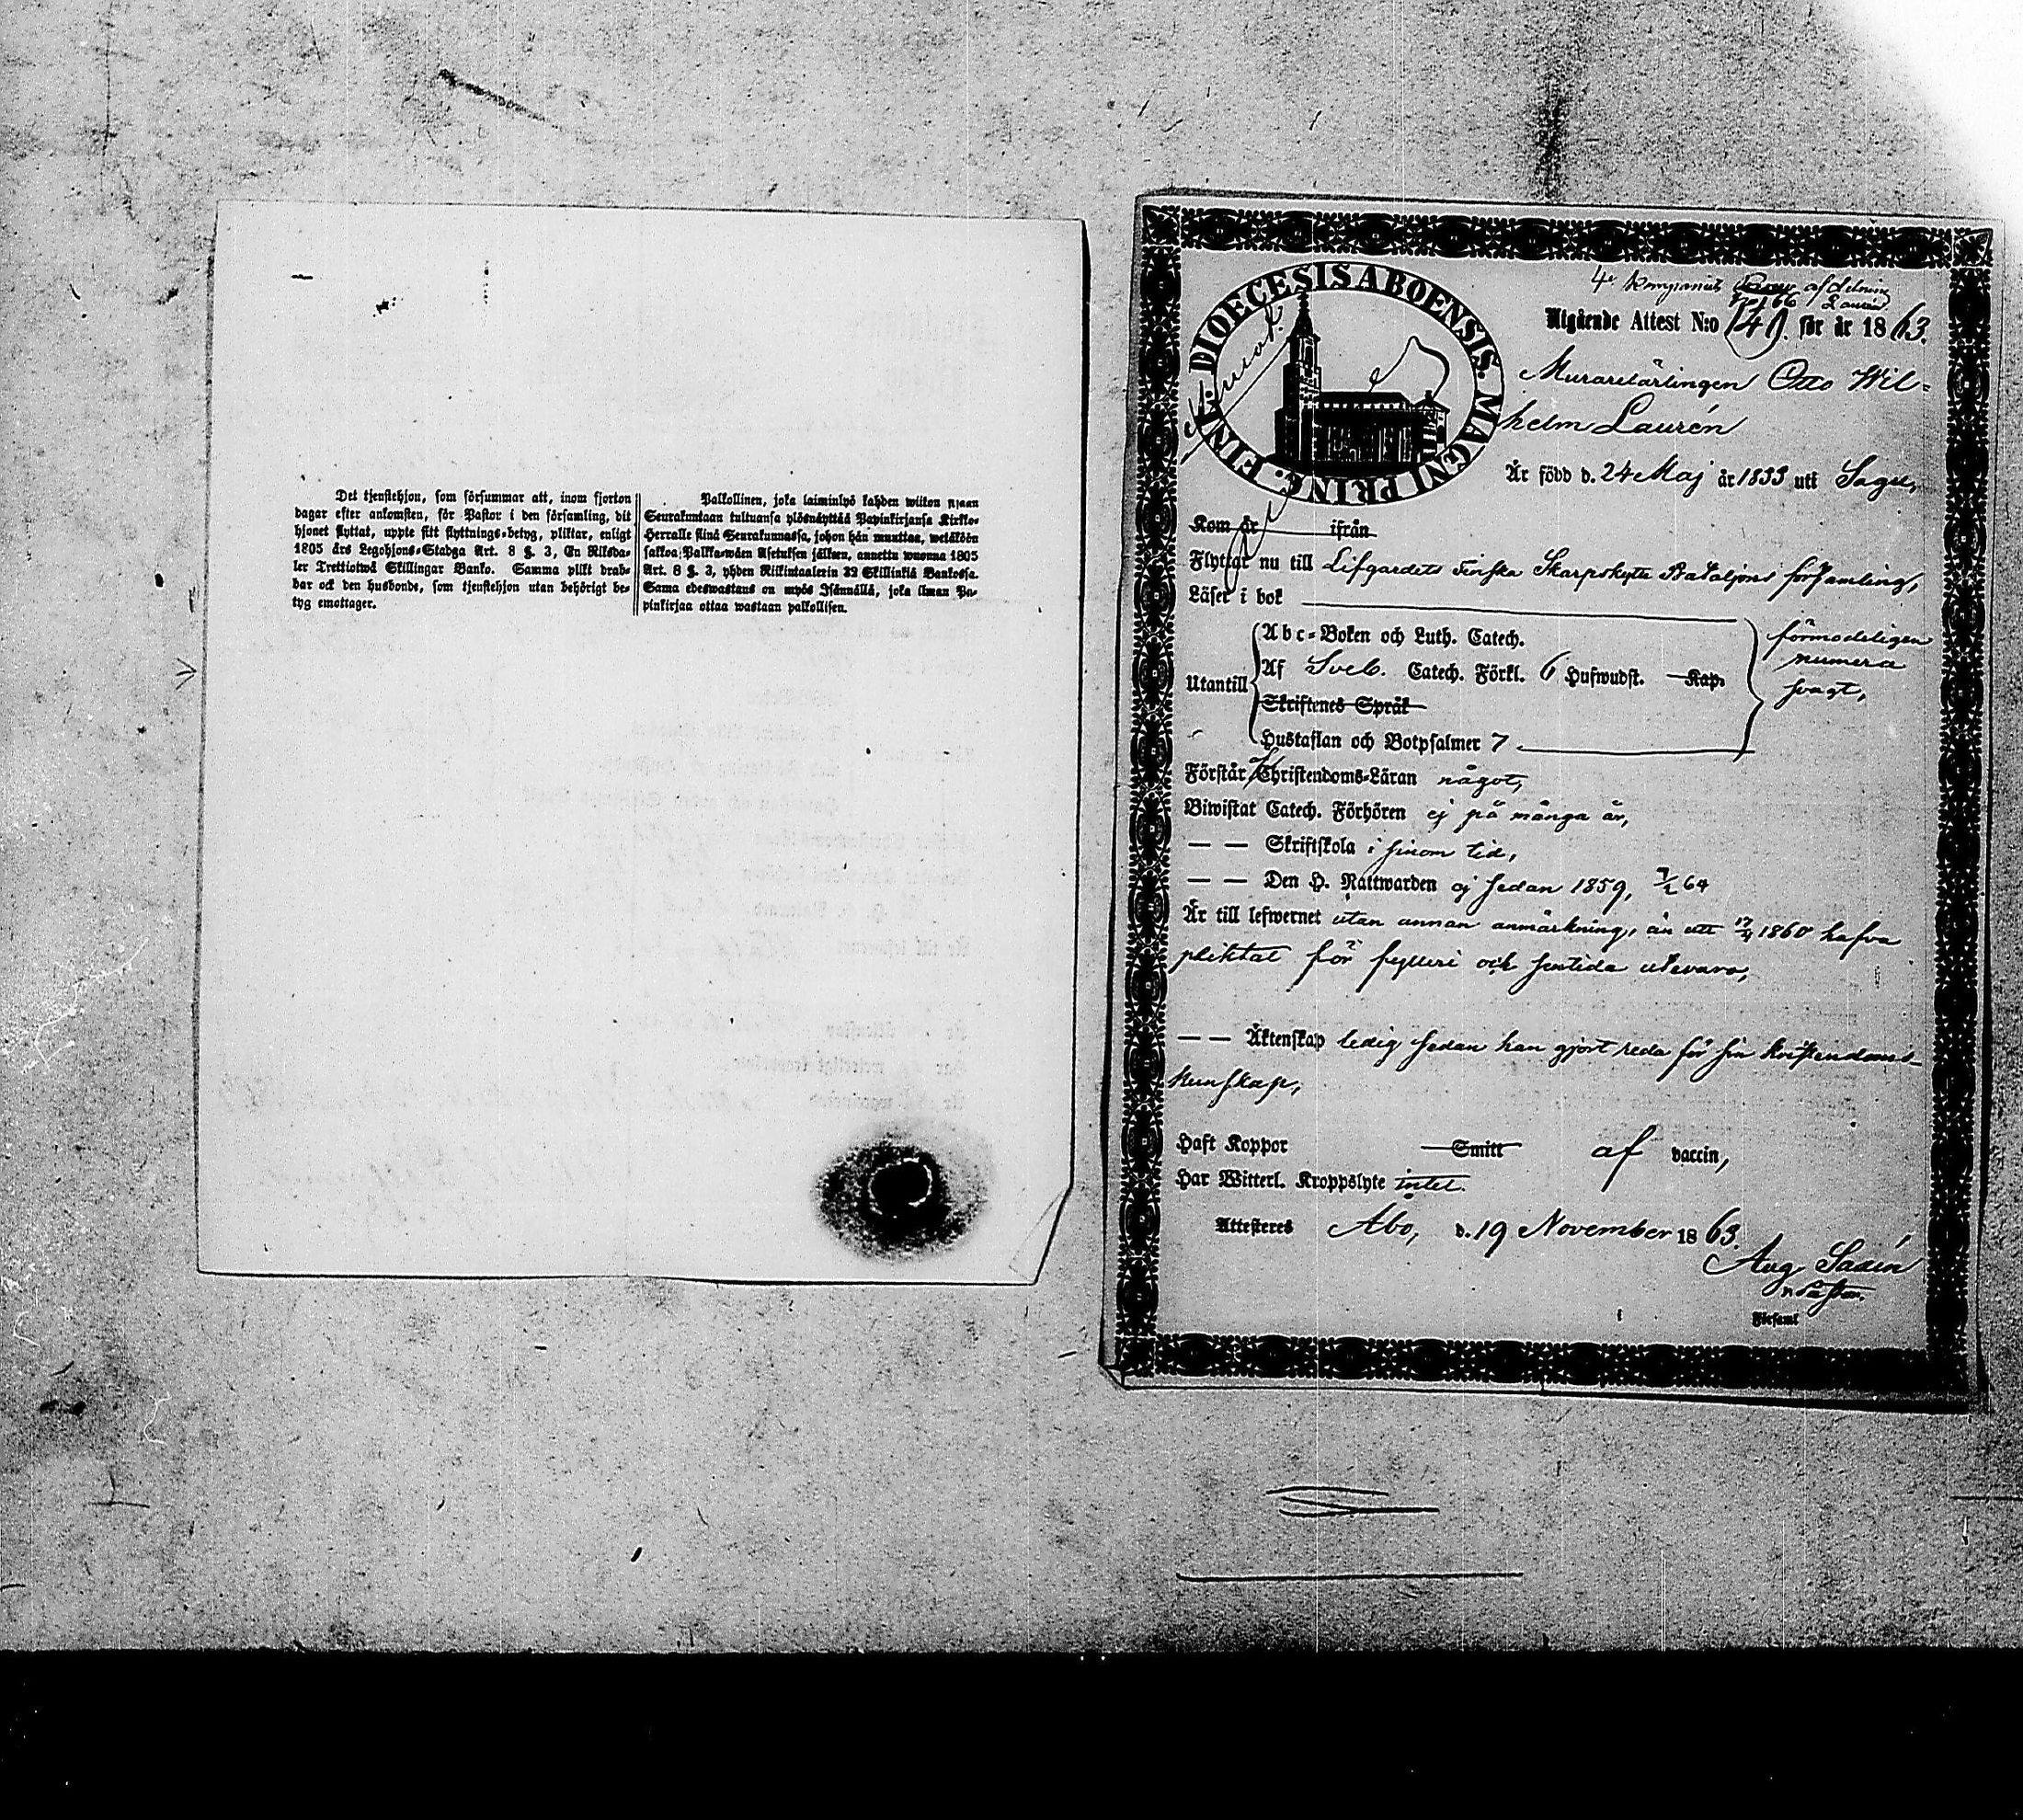 Det tjenstehjon, som försummar att, inom fjorton
dagar efter ankomsten, för Pastor i den församling, dit
hjonet flyttat, uppte sitt flyttnings-betyg, pliktar, enligt
1805 års Legohjons-Stadga Art. 8 §. 3, En Riksda-
ler Trettiotwå Skillingar Banko. Samma plikt drab-
bar ock den husbonde, som tjenstehjon utan behörigt be-
tyg emottager.
Palkollinen, joka laiminlyö kahden wiikon
Seurakuntaan tultuansa ylösnäyttää Papinkirjansa Kirkko-
Herralle siinä Seurakunnassa, johon hän muuttaa, wetäköön
sakkoa; Palkkawäen Asetuksen jälkeen, annettu wuonna 1805
Art. 8 §. 3, yhden Riikintaalerin 32 Skillinkiä Bankossa.
Sama edeswastaus on myös Isännällä, joka ilman Pa-
pinkirjaa ottaa wastaan palkollisen.
DIOECESIS ABOENSIS. MAGNI PRINC. FINL.
4e Kompaniets afdelning
166 Laurén
Utgående Attest N:o 149. för år 1863.
Murarelärlingen Otto Wil-
helm Laurén
Är född d. 24 Maj år 1833 uti Sagu,
Kom år ifrån
Flyttar nu till Lifgardets Finska Skarpskytte Bataljons församling,
Läser i bok
Utantill
Abc-Boken och Luth. Catech.
Af Sveb. Catech. Förkl. 6 Hufwudst. Kap.
Skriftenes Språk
Hustaflan och Botpsalmer 7
förmodeligen
numera
svagt,
Förstår Christendoms-Läran något,
Biwistat Catech. Förhören ej på många år,
— — Skriftskola i sinom tid,
— — Den H. Nattwarden ej sedan 1859, 7/2 64
Är till lefwernet utan annan anmärkning, än att 17/4 1860 hafva
pliktat för fylleri och sentida utevaro,
— — Äktenskap ledig sedan han gjort reda för sin kristendoms-
kunskap,
Haft Koppor Smitt af vaccin,
Har Witterl. Kroppslyte intet.
Attesteres Åbo, d. 19 November 1863.
Aug. Sadén
n. Pastor.
Församl